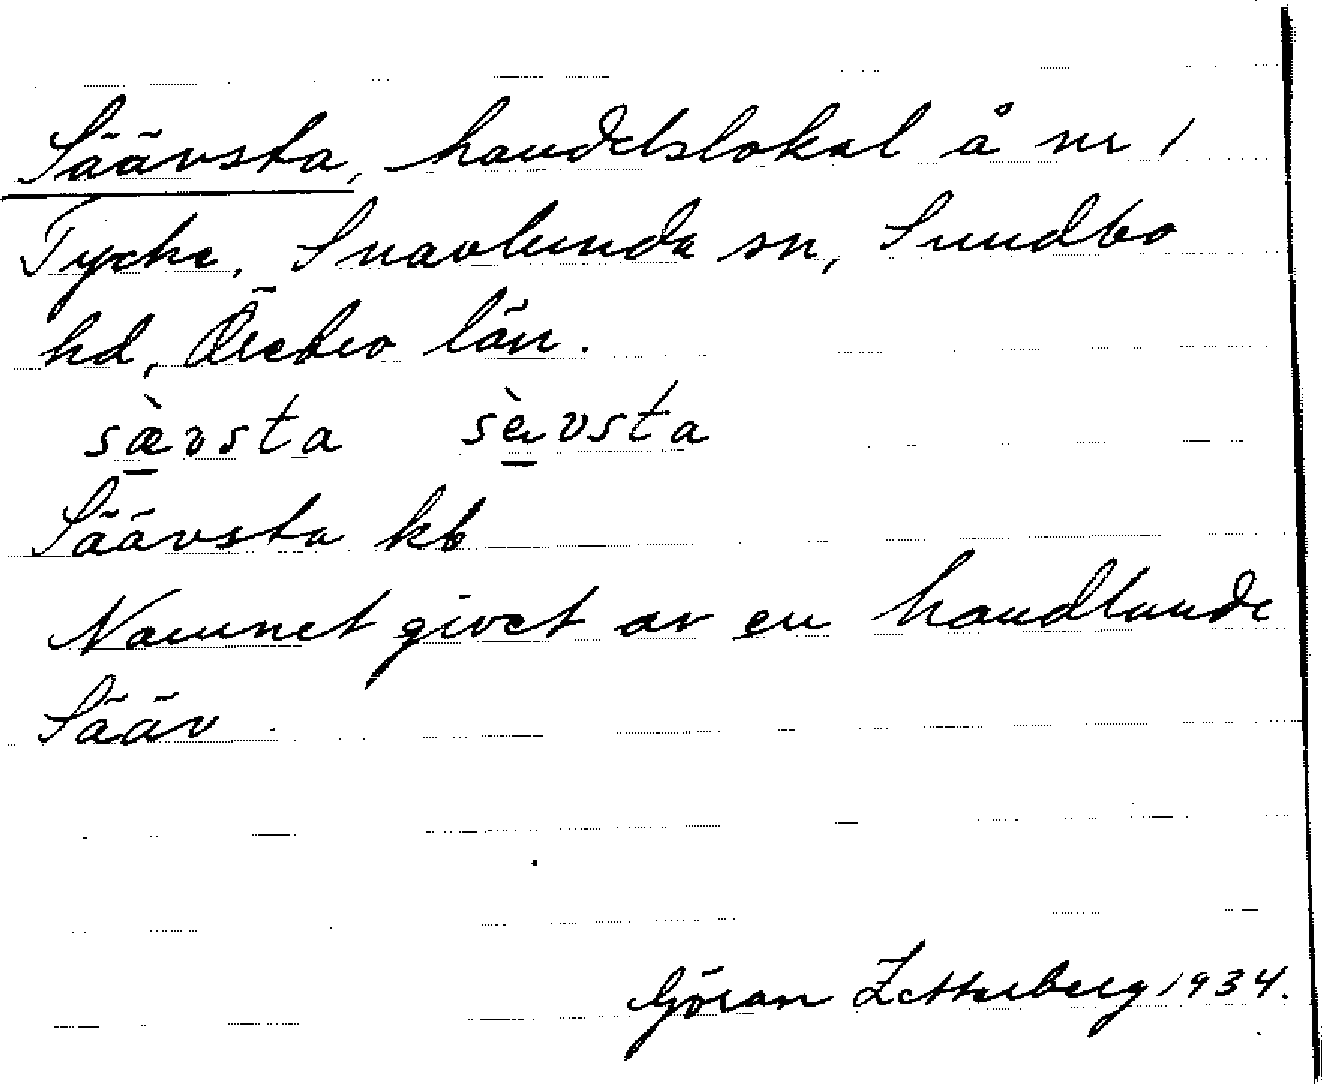 Säävsta, handelslokal å nr 1
Tycke, Snavlunda sn, Sundbo
hd, Örebro län.
sæ̀vsta sèvsta
Säävsta kb
Namnet givet av en handlande
Sääv.
Göran Zetterberg 1934.